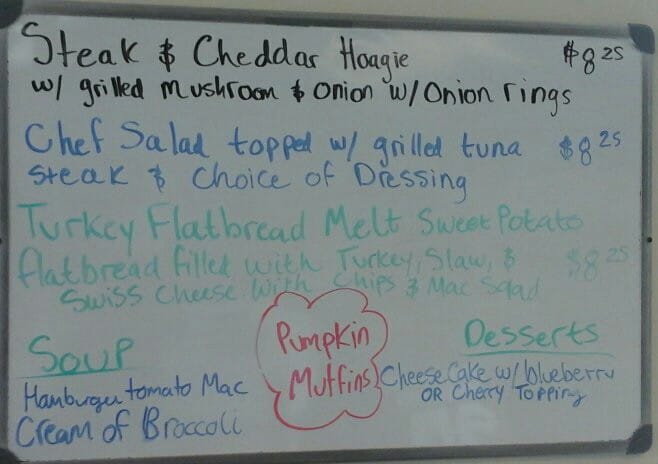 Steak & Cheddar Hoagie $8.25
w/ grilled mushroom & onion w/ Onion rings
Chef Salad topped w/ grilled tuna $8.25
steak & choice of Dressing
Turkey Flatbread Melt Sweet Potato
flatbread filled with Turkey, Slaw, & $8.25
Swiss Cheese With Chips & Mac Salad
Soup
Hamburger tomato Mac
Cream of Broccoli
Pumpkin
Muffins
Desserts
Cheese Cake w/ blueberry
OR Cherry Topping